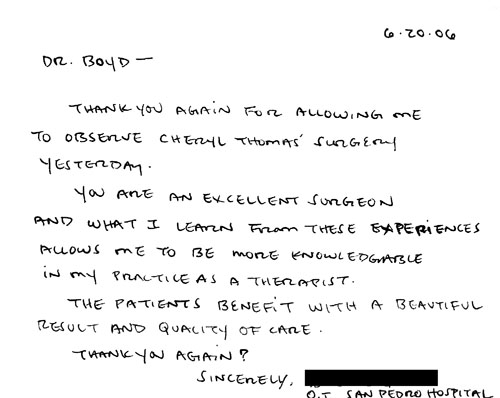 6.20.06
DR. BOYD —
THANK YOU AGAIN FOR ALLOWING ME
TO OBSERVE CHERYL THOMAS' SURGERY
YESTERDAY.
YOU ARE AN EXCELLENT SURGEON
AND WHAT I LEARN FROM THESE EXPERIENCES
ALLOWS ME TO BE MORE KNOWLEDGABLE
IN MY PRACTICE AS A THERAPIST.
THE PATIENTS BENEFIT WITH A BEAUTIFUL
RESULT AND QUALITY OF CARE.
THANK YOU AGAIN?
SINCERELY,
O.T. SAN PEDRO HOSPITAL